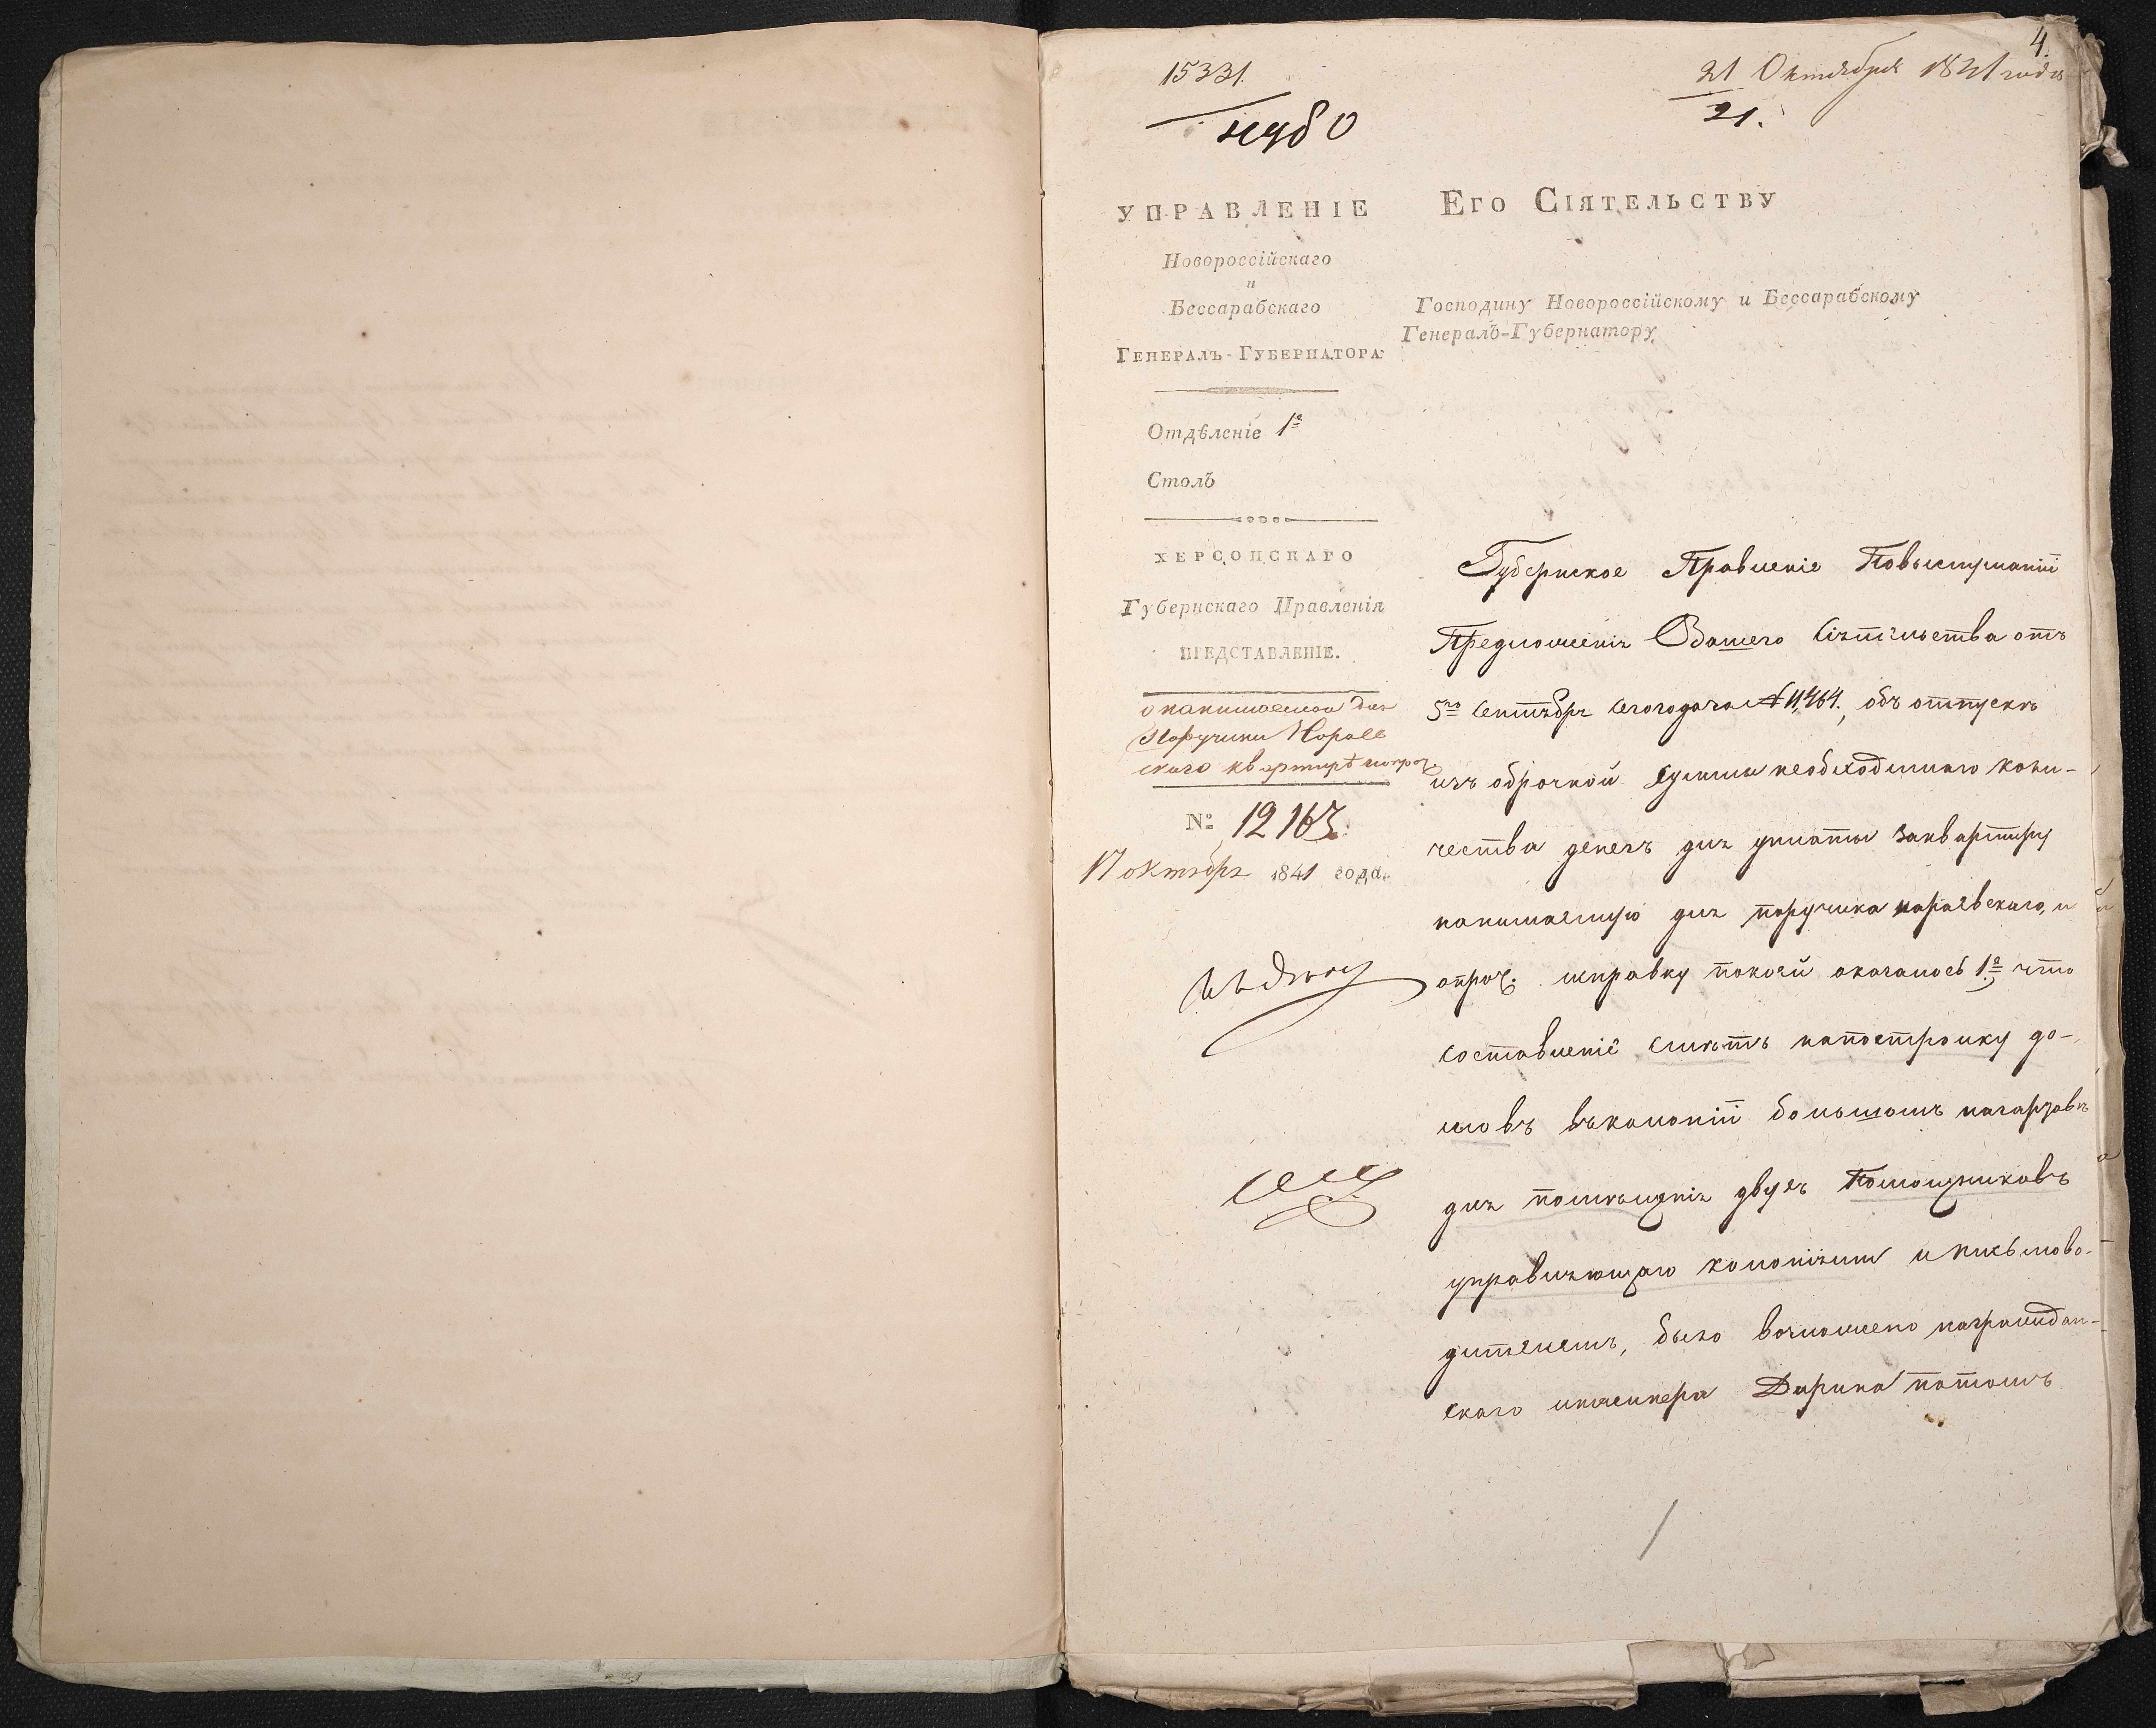 4.
15331.
21 Октября 1841 года
21.
УПРАВЛЕНІЕ
Новороссійскаго
и
Бессарабскаго
ГЕНЕРАЛЪ-ГУБЕРНАТОРА
Отдѣленіе 1е
Столъ
ХЕРСОНСКАГО
Губернскаго Правленія
ПРЕДСТАВЛЕНІЕ.
о нанимаемой для
Поручика Кораев
скаго квартирѣ и проч.
№ 12163.
17 октября 1841 года.
ЕГО СІЯТЕЛЬСТВУ
Господину Новороссійскому и Бессарабскому
Генералъ-Губернатору.
Губернское Правленіе Повыслушаніи
Предложенія Вашего Сіятельства отъ
5го Сентября сегогода за № 11,464., объ отпускѣ
изъ оброчной суммы необходимаго коли-
чества денегъ для уплаты заквартиру
нанимаемую для поручика караевскаго, и
проч. справку покоей оказалось 1е, что
составленіе смѣтъ напостройку до-
мовъ въколоніи большомъ нагартавѣ
для помѣщенія двухъ Помощниковъ
управляющаго колоніями и письмово-
дителемъ, было возложено награждан-
скаго инженера Дарина потомъ